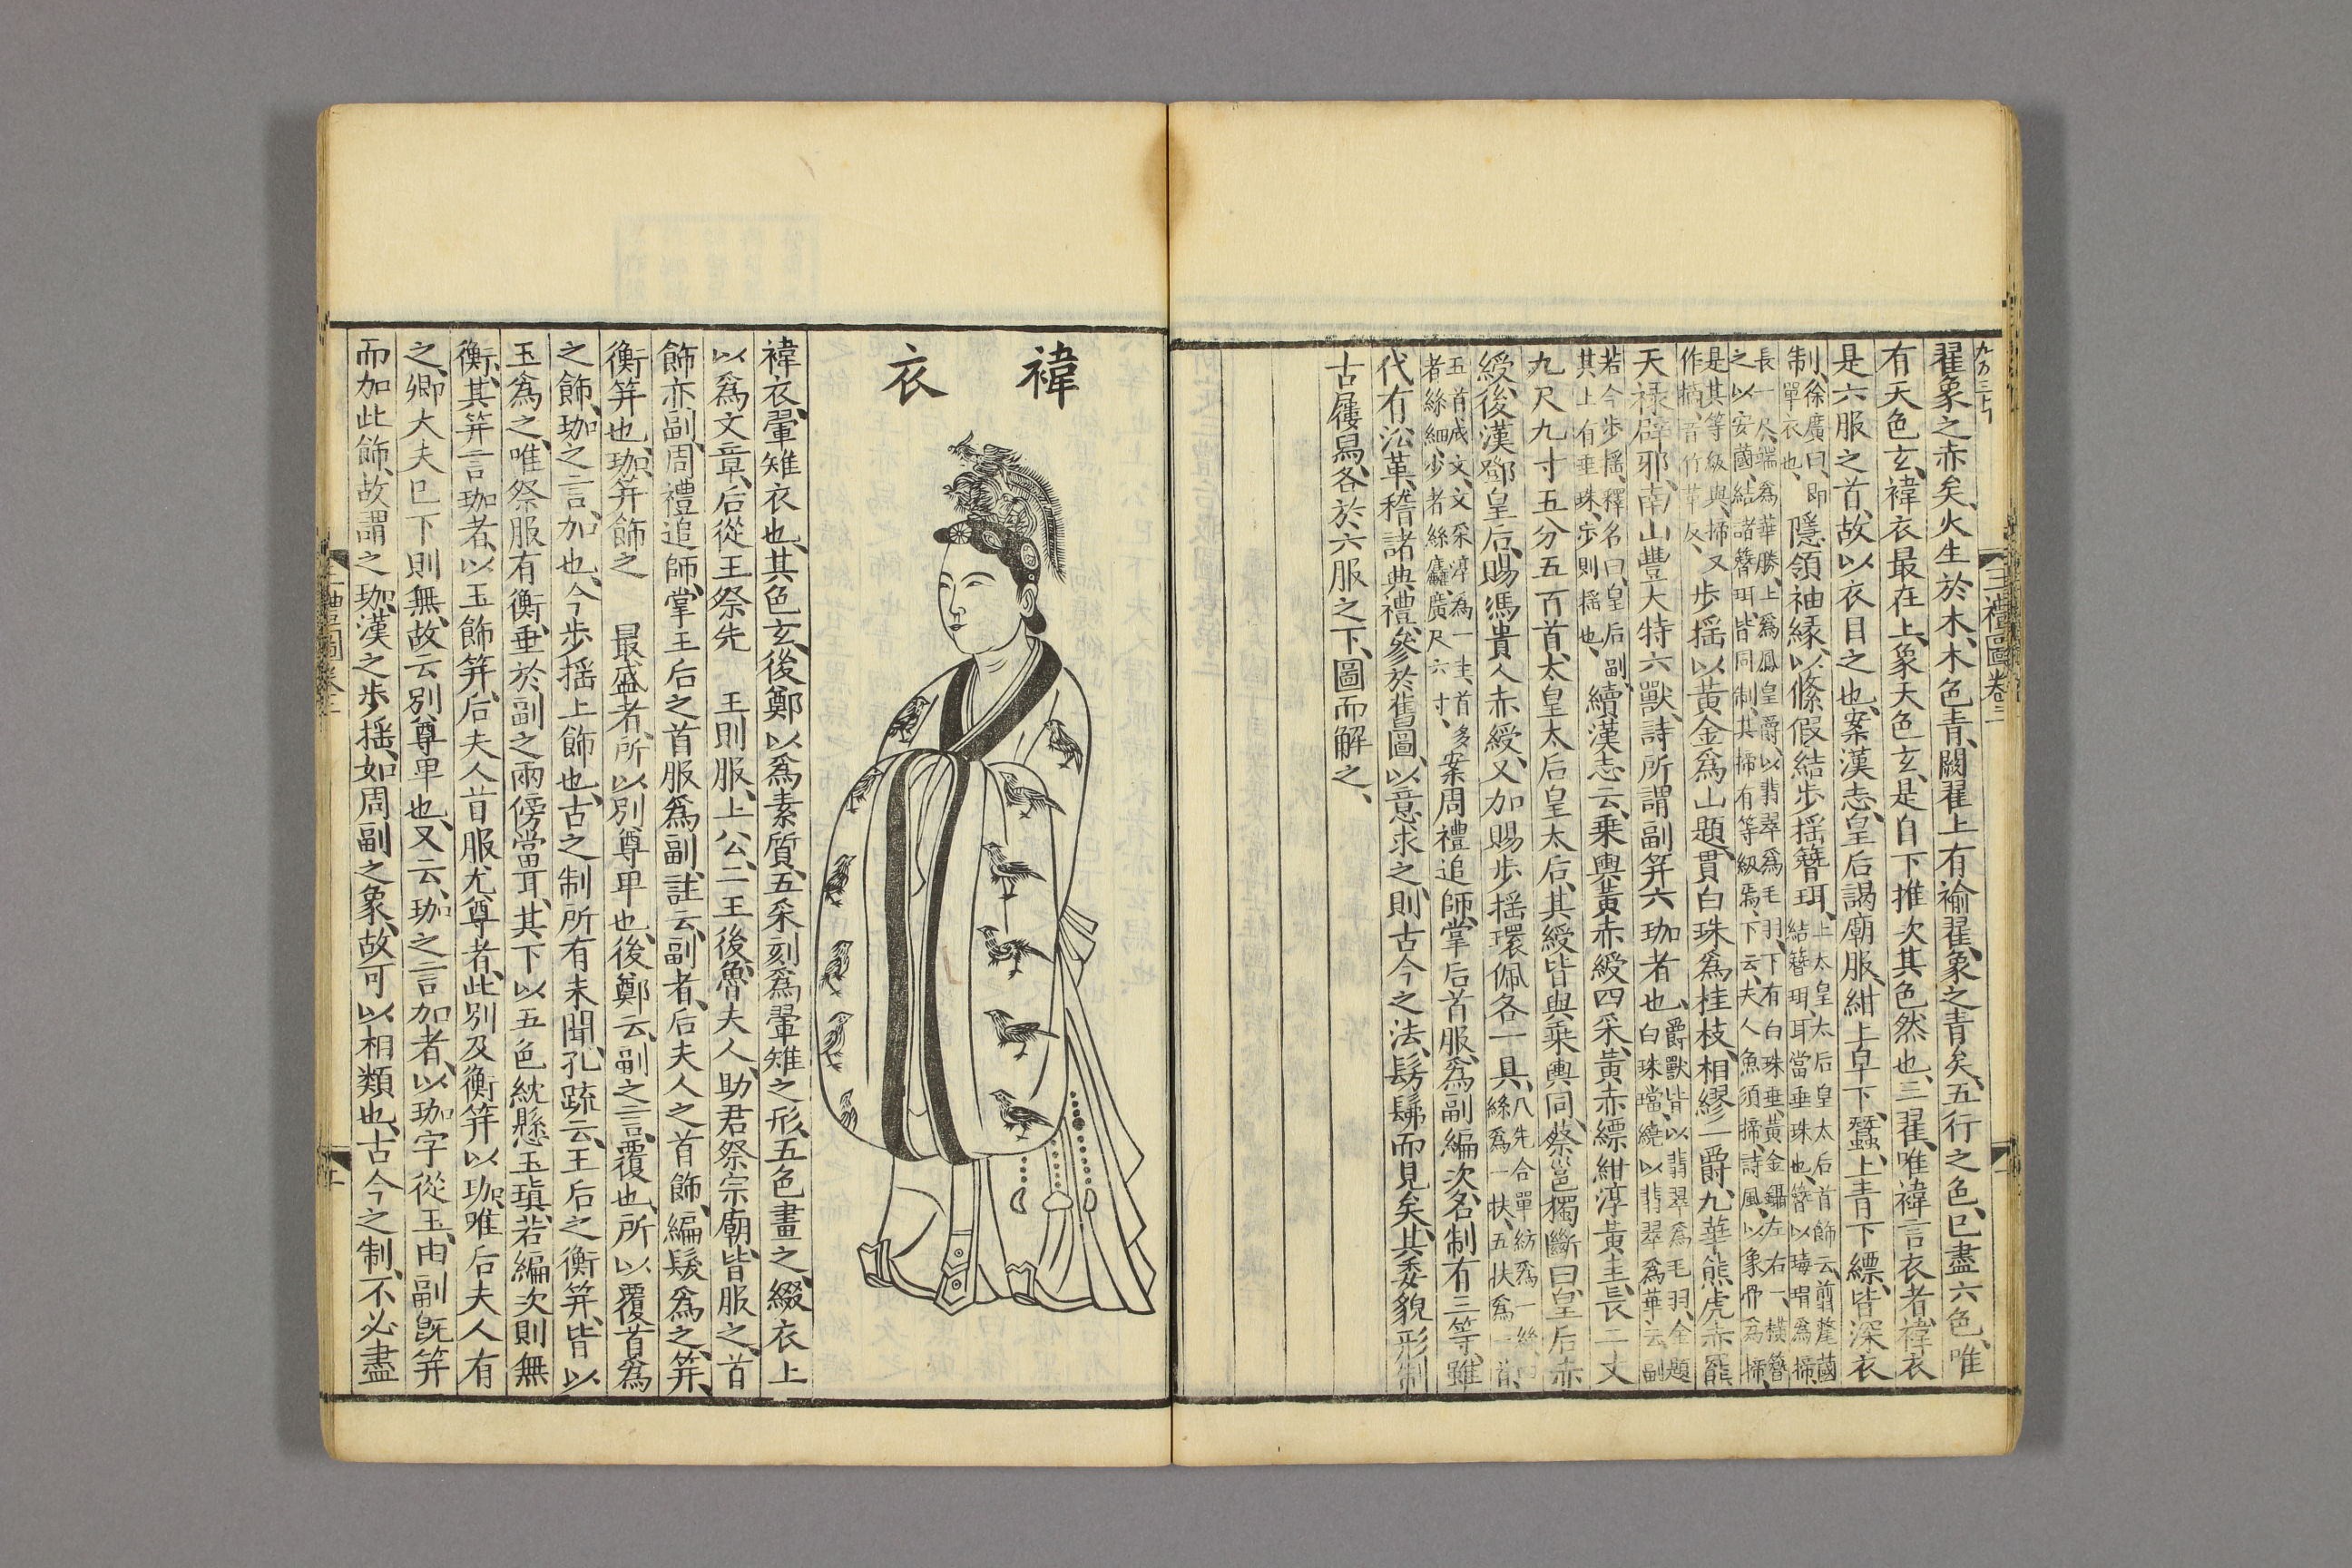 九分三十
翟象之赤矣、火生於木、木色青、闕翟上有褕翟、象之青矣、五行之色、已盡六色、唯
有天色玄、褘衣最在上、象天色玄、是自下推次其色然也、三翟、唯褘言衣者、褘衣
是六服之首、故以衣目之也、案漢志、皇后謁廟服、紺上皁下、蠶、上青下縹、皆深衣
制、徐廣曰、即單衣也、隱領袖緣、以絛假結步揺簪珥、上太皇太后皇太后首飾云、翦氂蔮結簪珥、耳當垂珠也、簪以瑇瑁爲擿、
長一尺、端爲華勝、上爲鳳皇爵、以翡翠爲毛羽、下有白珠垂黃金鑷左右一橫簪之、以安蔮結、諸簪珥、皆同制、其擿有等級焉、下云、夫人魚須擿、詩風、以象骨爲擿、
是其等級與、擿又作揥、音竹革反、步揺以黃金爲山題、貫白珠爲桂枝、相繆一爵、九華、熊虎赤羆
天祿辟邪、南山豐大特六獸、詩所謂副笄六珈者也、爵獸皆以翡翠爲毛羽、金題白珠璫繞、以翡翠爲華云、副
若今步揺、釋名曰、皇后副、其上有垂珠、步則揺也、續漢志云、乗輿黃赤綬四采、黃赤縹紺、淳黃圭、長二丈
九尺九寸五分五百首、太皇太后皇太后、其綬皆與乗輿同、蔡邕獨斷曰、皇后赤
綬、後漢鄧皇后、賜馮貴人赤綬、又加賜步揺環佩各一具、八先合單紡爲一絲、四絲爲一扶、五扶爲一首、
五首成文、文采淳爲一圭、首多者絲細、少者絲麤、廣尺六寸、案周禮追師、掌后首服、爲副編次、名制有三等、雖
代有㳂革、稽諸典禮、參於舊圖、以意求之、則古今之法、髣髴而見矣、其委貌形制
古屨舄、各於六服之下、圖而解之、
三禮圖卷二
褘衣
褘衣、翬雉衣也、其色玄、後鄭以爲素質、五采刻爲翬雉之形、五色畫之、綴衣上
以爲文章、后從王祭先 王則服、上公、二王後、魯夫人、助君祭宗廟、皆服之、首
飾亦副、周禮追師、掌王后之首服爲副、註云、副者、后夫人之首飾、編髮爲之、笄、
衡笄也、珈、笄飾之 最盛者、所以別尊卑也、後鄭云、副之言覆也、所以覆首爲
之飾、珈之言、加也、今步揺上飾也、古之制所有未聞、孔疏云、王后之衡笄、皆以
玉爲之、唯祭服有衡、垂於副之兩傍當耳、其下以五色紞懸玉瑱、若編次則無
衡、其笄言珈者、以玉飾笄、后夫人首服尤尊者、此別及衡笄以珈、唯后夫人有
之、卿大夫已下則無、故云別尊卑也、又云、珈之言加者、以珈字從玉、由副旣笄
而加此飾、故謂之珈、漢之步揺、如周副之象、故可以相類也、古今之制、不必盡